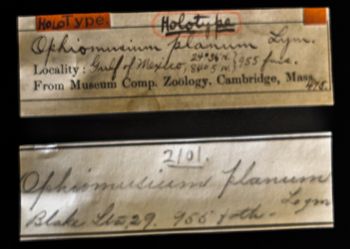 HOLOTYPE Holotype
Ophiomusium planum Lym.
Locality: Gulf of Mexico, 24°36'N. 955 fms.
From Museum Comp. Zoology, Cambridge, Mass.
2101.
Ophiomusium planum
Lym
Blake Sta 29. 955 fath.